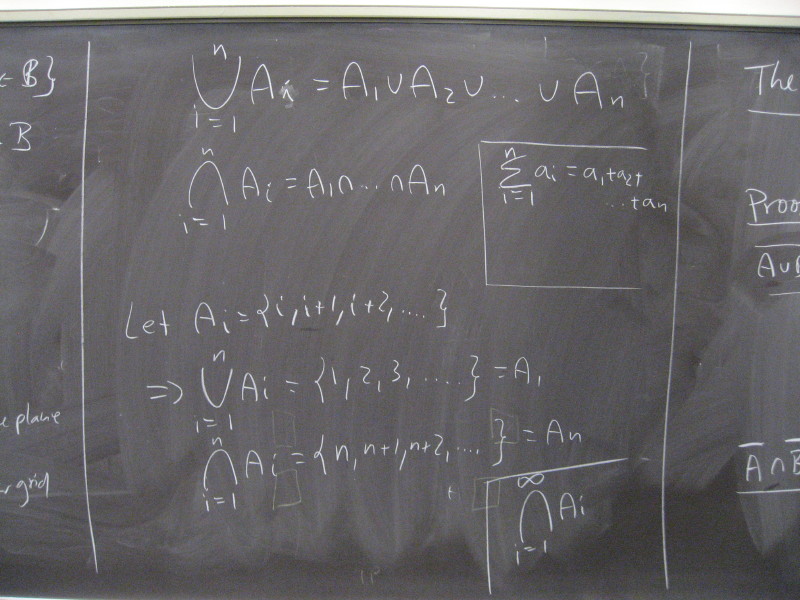 B}
B
e plane
grid
⋃_{i=1}^{n} A_i = A_1 ∪ A_2 ∪ ... ∪ A_n
⋂_{i=1}^{n} A_i = A_1 ∩ ... ∩ A_n
∑_{i=1}^{n} a_i = a_1 + a_2 +
... + a_n
Let A_i = {i, i+1, i+2, ....}
=> ⋃_{i=1}^{n} A_i = {1, 2, 3, .....} = A_1
⋂_{i=1}^{n} A_i = {n, n+1, n+2, ....} = A_n
⋂_{i=1}^{∞} A_i
The
Proo
A̅∪̅B̅
A̅ ∩ B̅